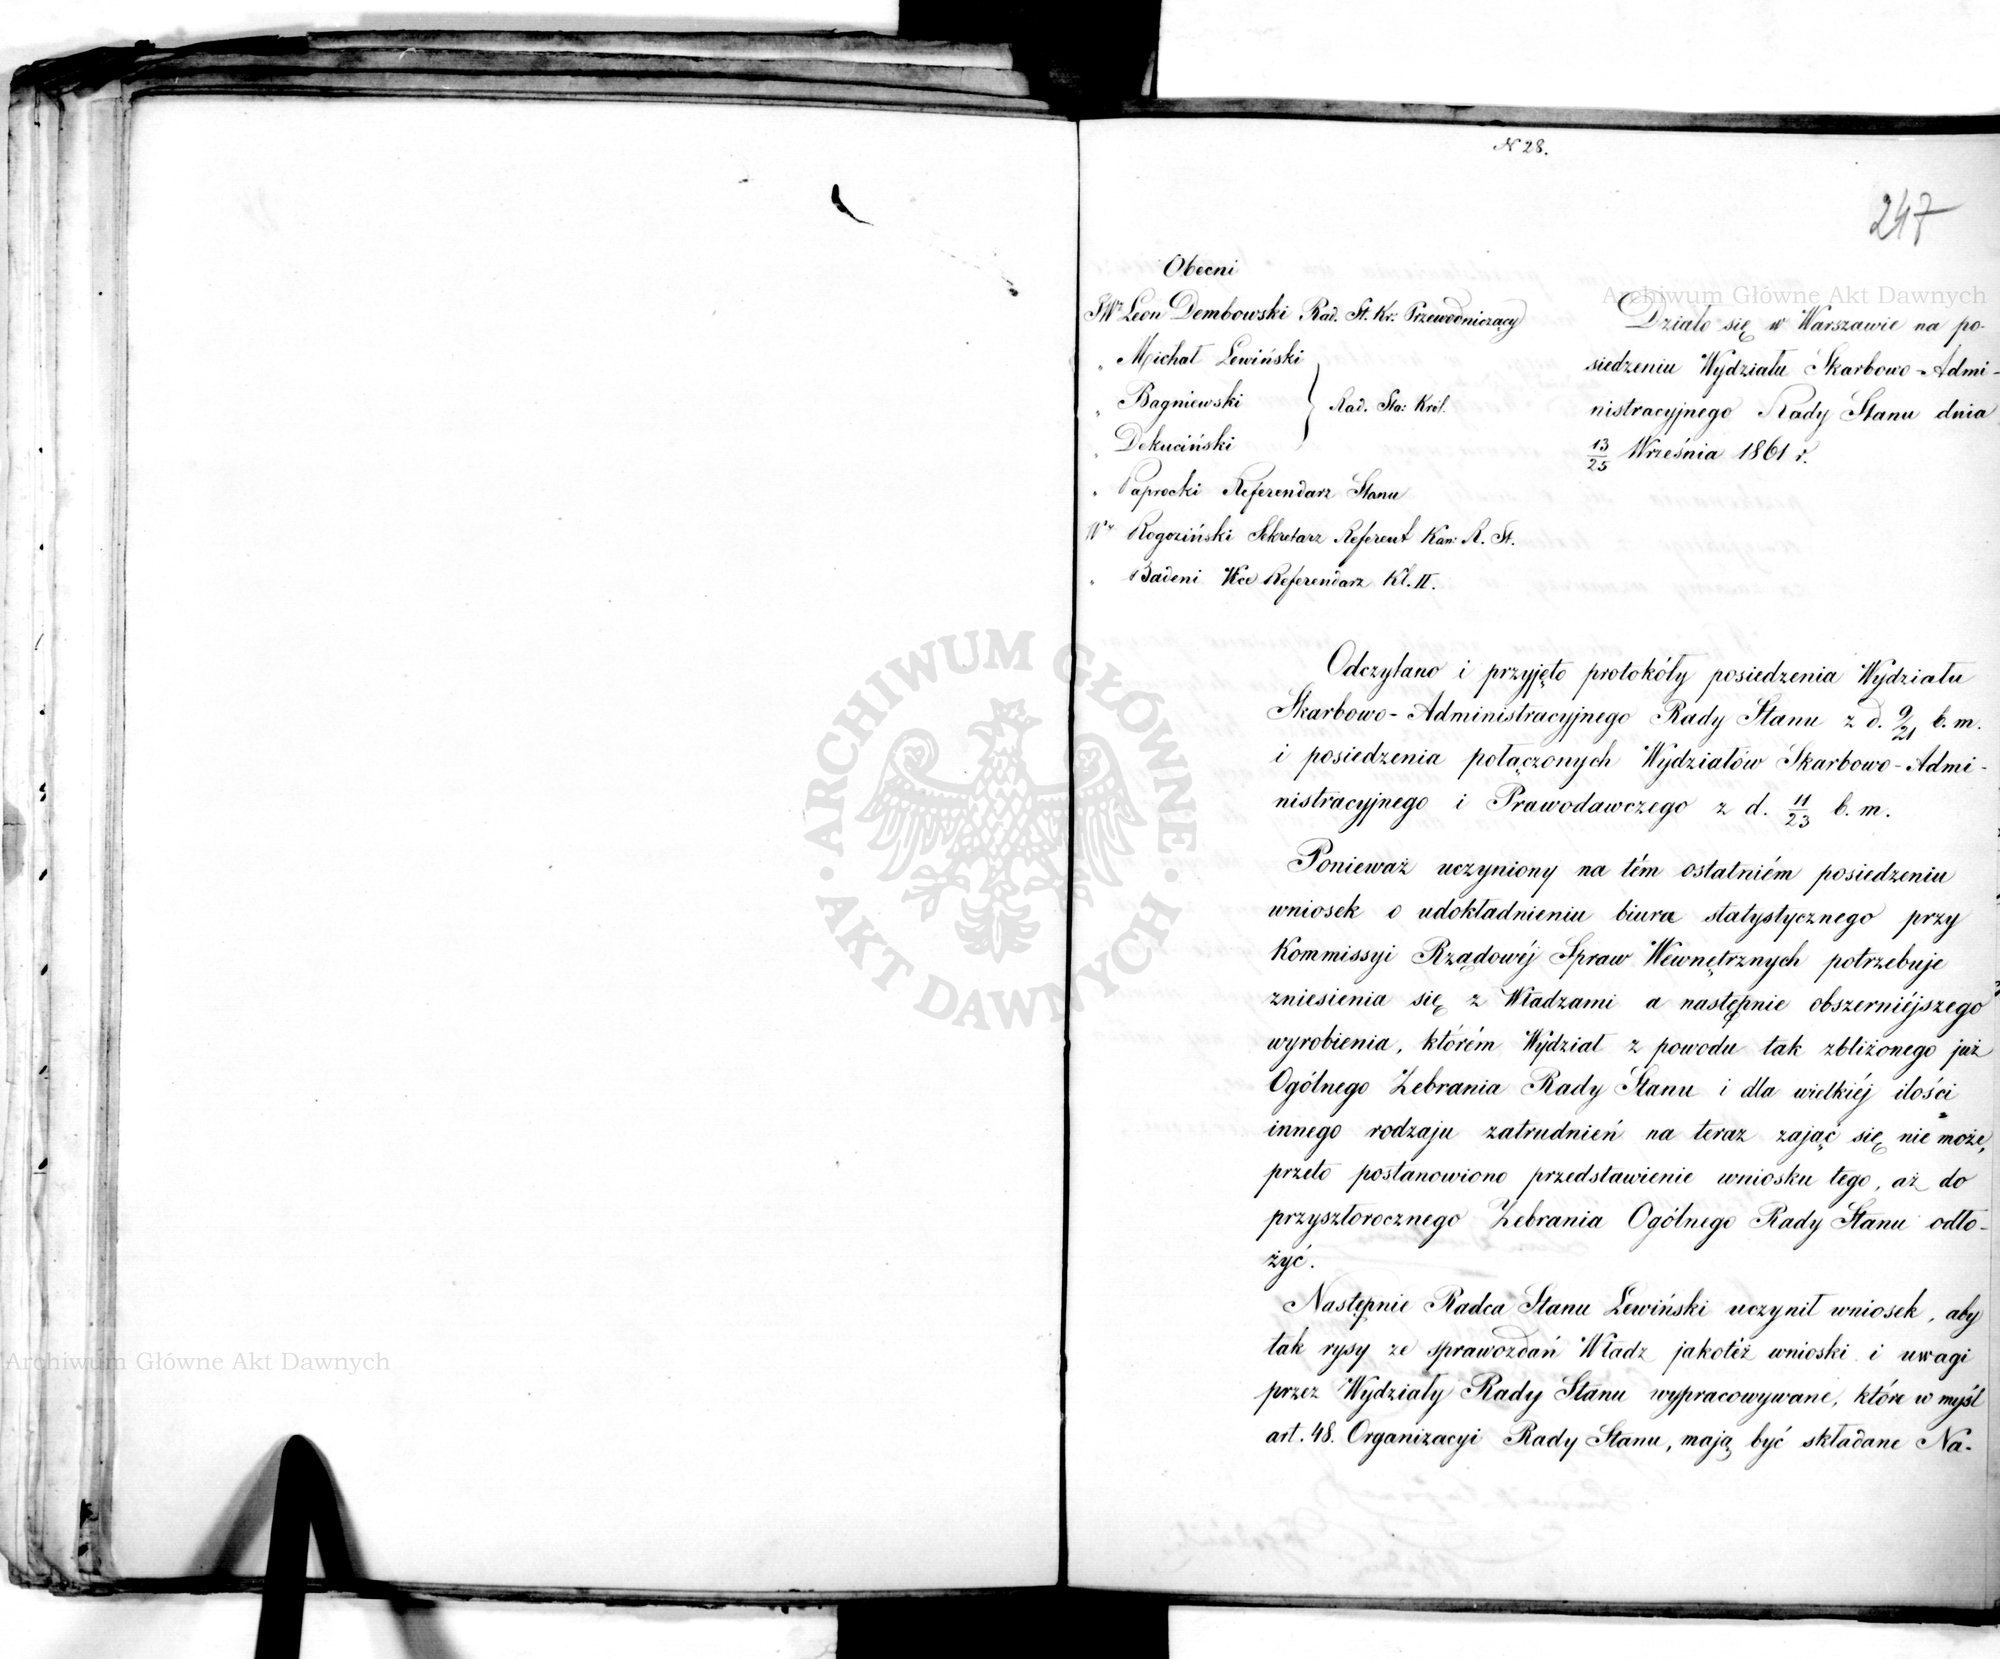 N 28.
247
Obecni
JW. Leon Dembowski Rad. St. Kr. Przewodniczący
„ Michał Lewiński
„ Bagniewski
Rad. Sta: Król.
„ Dekuciński
„ Paprocki Referendarz Stanu
W. Rogoziński Sekretarz Referent Kan: R. St.
„ Badeni Vice Referendarz Kl. II.
Działo się w Warszawie na po-
siedzeniu Wydziału Skarbowo-Admi-
nistracyjnego Rady Stanu dnia
13/25 Września 1861 r.
Odczytano i przyjęto protokóły posiedzenia Wydziału
Skarbowo-Administracyjnego Rady Stanu z d. 9/21 b. m.
i posiedzenia połączonych Wydziałów Skarbowo-Admi-
nistracyjnego i Prawodawczego z d. 11/23 b. m.
Ponieważ uczyniony na tém ostatniém posiedzeniu
wniosek o udokładnieniu biura statystycznego przy
Kommissyi Rządowéj Spraw Wewnętrznych potrzebuje
zniesienia się z Władzami a następnie obszerniéjszego
wyrobienia, którém Wydział z powodu tak zbliżonego już
Ogólnego Zebrania Rady Stanu i dla wielkiéj ilości
innego rodzaju zatrudnień na teraz zająć się nie może,
przeto postanowiono przedstawienie wniosku tego, aż do
przyszłorocznego Zebrania Ogólnego Rady Stanu odło-
żyć.
Następnie Radca Stanu Lewiński uczynił wniosek, aby
tak rysy ze sprawozdań Władz jakotéż wnioski i uwagi
przez Wydziały Rady Stanu wypracowywane, które w myśl
art. 48. Organizacyi Rady Stanu, mają być składane Na-
Archiwum Główne Akt Dawnych
Archiwum Główne Akt Dawnych
ARCHIWUM GŁÓWNE
AKT DAWNYCH